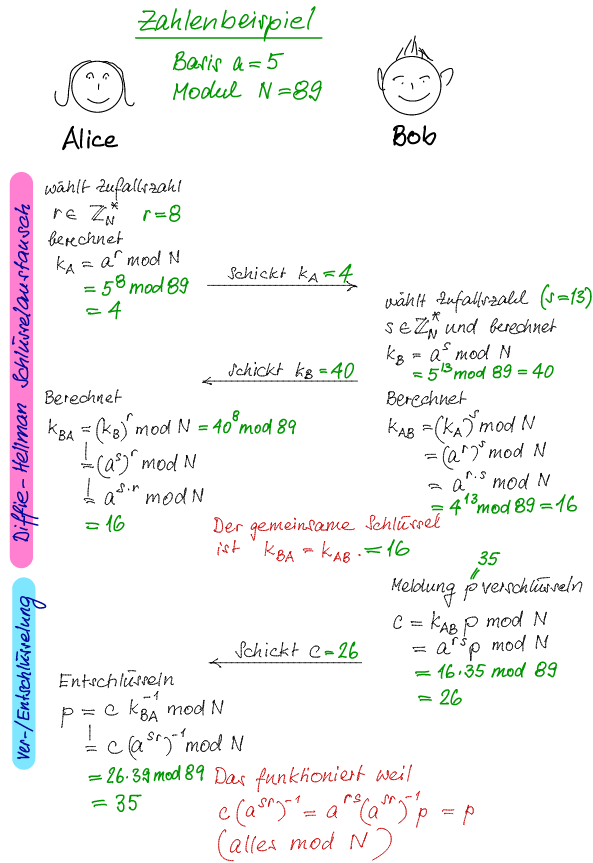 Zahlenbeispiel
Basis a = 5
Modul N = 89
Alice
Bob
Diffie-Hellman Schlüsselaustausch
wählt Zufallszahl
r ∈ ℤ*_N r = 8
berechnet
k_A = a^r mod N
= 5^8 mod 89
= 4
schickt k_A = 4
wählt Zufallszahl (s=13)
s ∈ ℤ*_N und berechnet
k_B = a^s mod N
= 5^13 mod 89 = 40
schickt k_B = 40
Berechnet
k_BA = (k_B)^r mod N = 40^8 mod 89
= (a^s)^r mod N
= a^{s·r} mod N
= 16
Berechnet
k_AB = (k_A)^s mod N
= (a^r)^s mod N
= a^{r·s} mod N
= 4^13 mod 89 = 16
Der gemeinsame Schlüssel
ist k_BA = k_AB. = 16
Ver-/Entschlüsselung
35
Meldung p verschlüsseln
c = k_AB p mod N
= a^{rs} p mod N
= 16·35 mod 89
= 26
Schickt c = 26
Entschlüsseln
p = c k_BA^{-1} mod N
= c (a^{sr})^{-1} mod N
= 26·39 mod 89
= 35
Das funktioniert weil
c (a^{sr})^{-1} = a^{rs} (a^{sr})^{-1} p = p
(alles mod N)